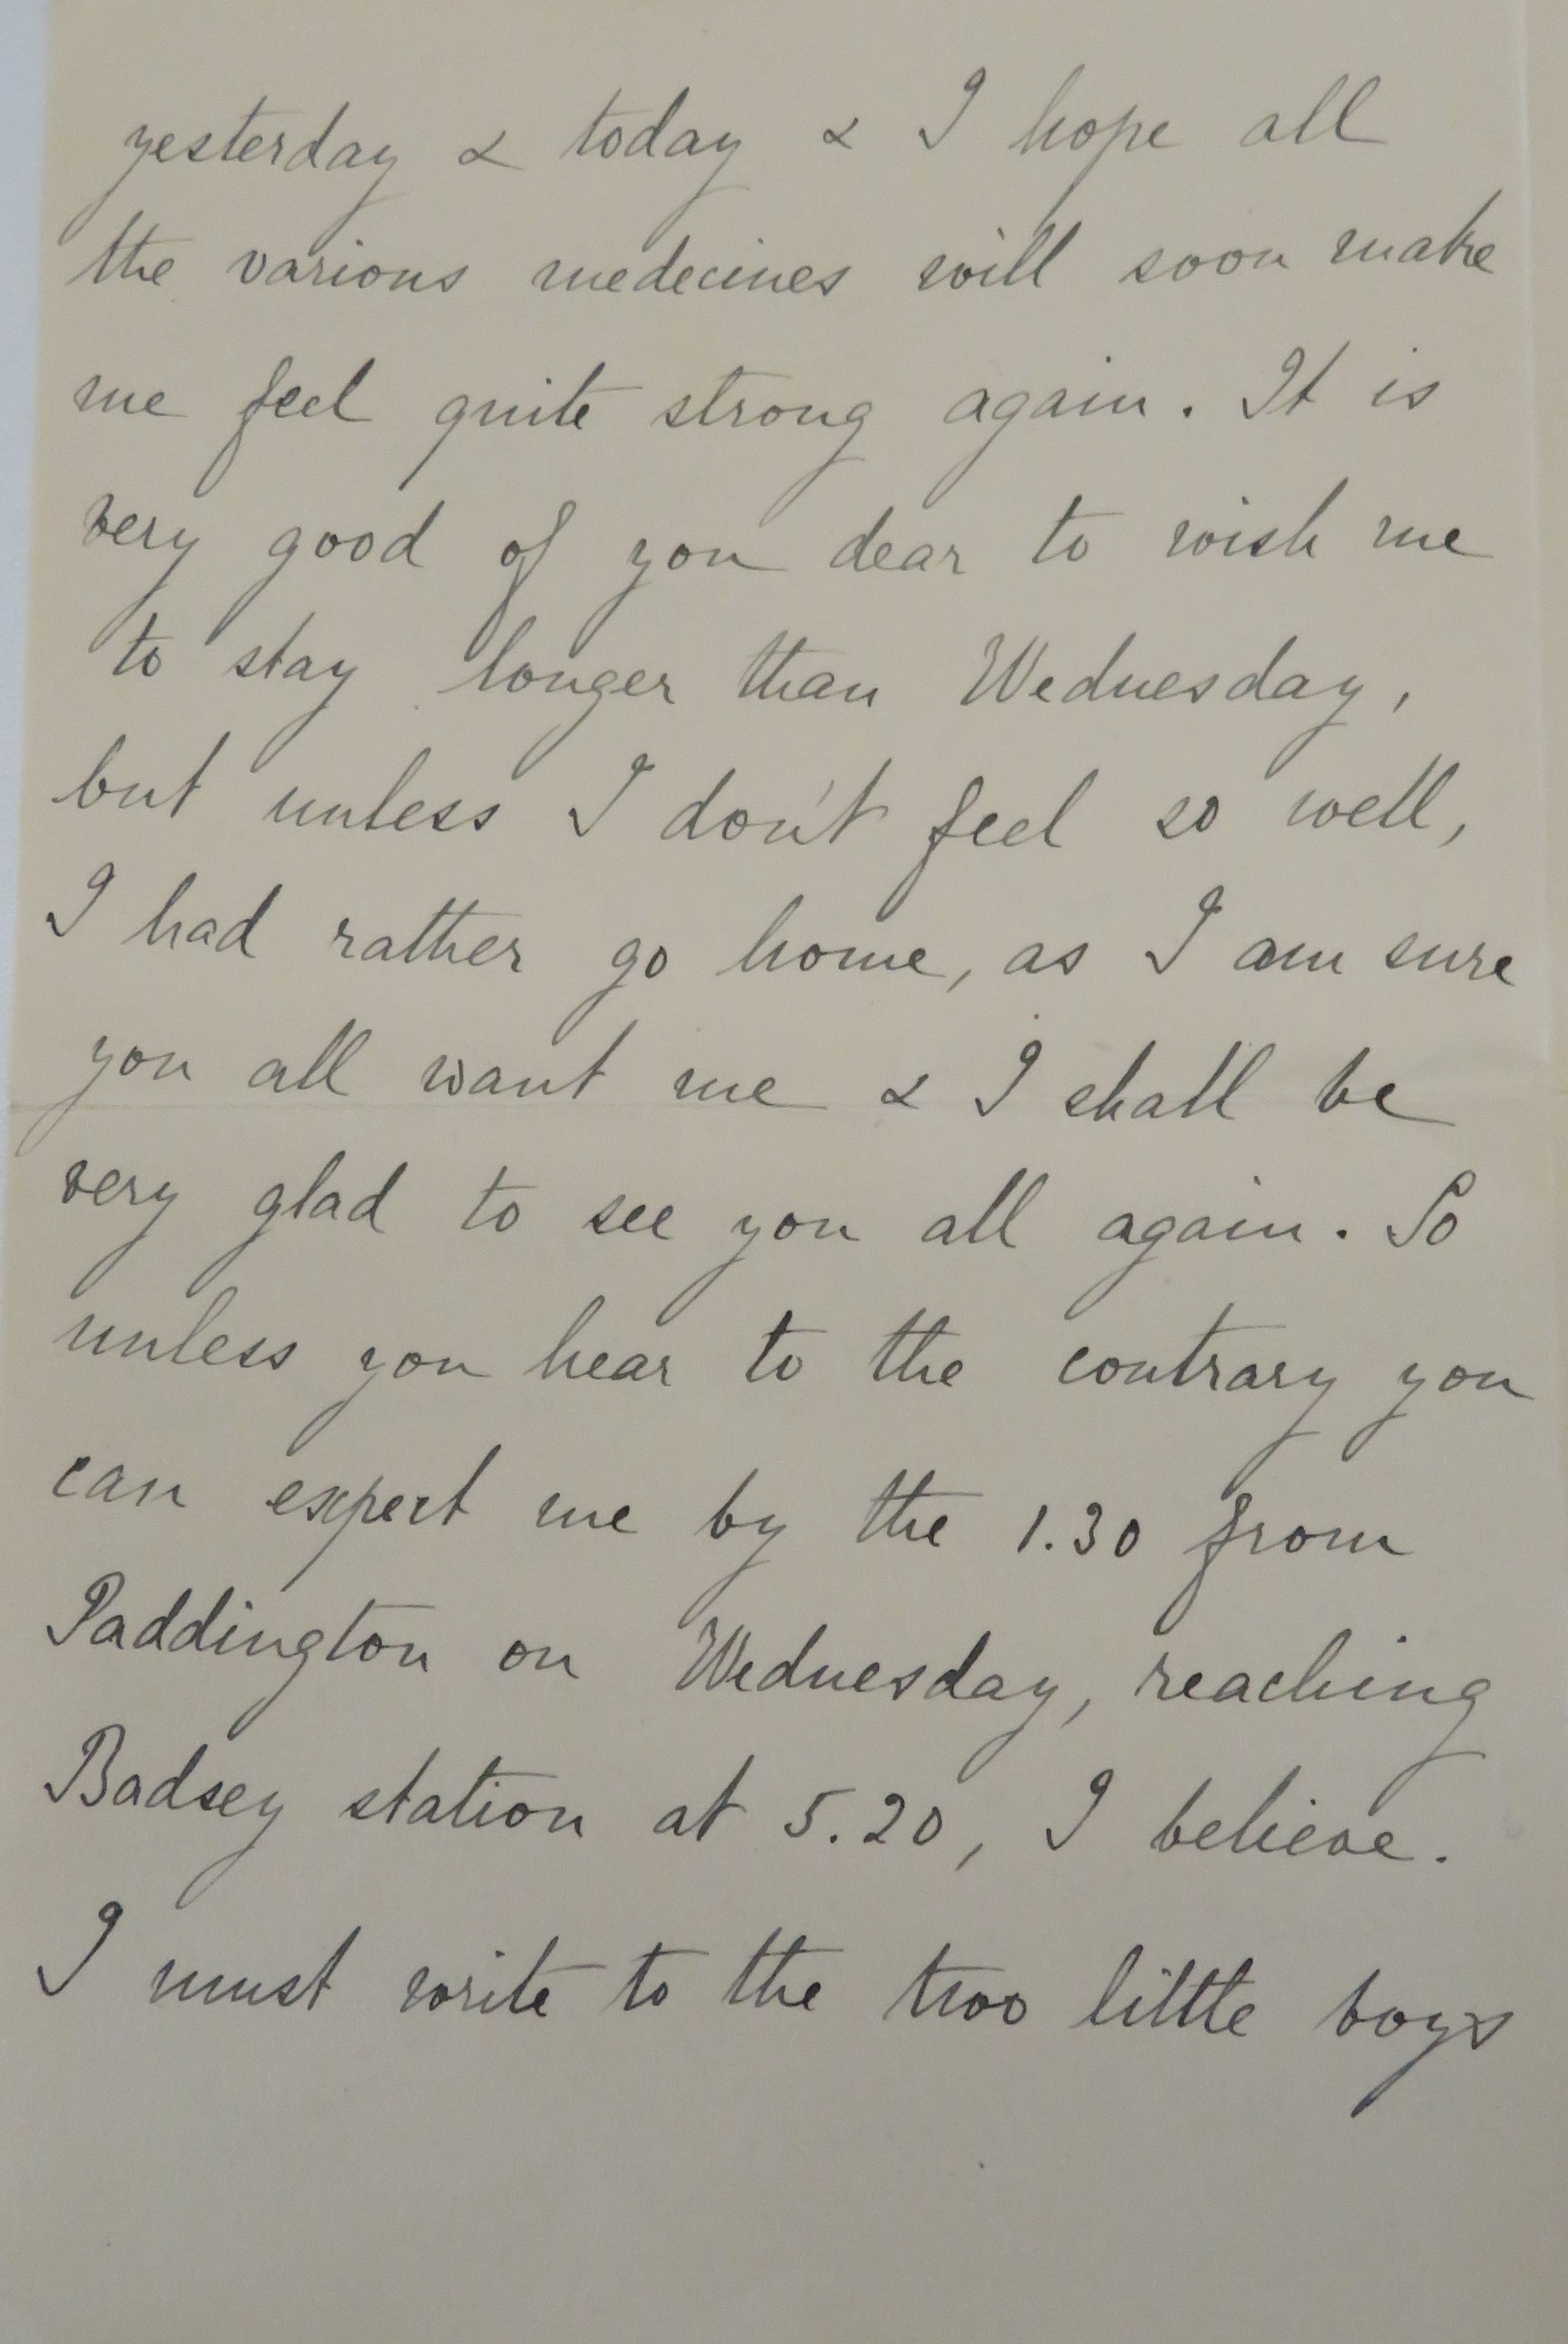 yesterday & today & I hope all
the various medecines will soon make
me feel quite strong again. It is
very good of you dear to wish me
to stay longer than Wednesday,
but unless I don't feel so well,
I had rather go home, as I am sure
you all want me & I shall be
very glad to see you all again. So
unless you hear to the contrary you
can expect me by the 1.30 from
Paddington on Wednesday, reaching
Badsey station at 5.20, I believe.
I must write to the two little boys